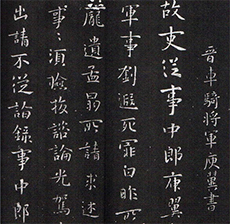 晉車騎將軍庾翼書
故吏從事中郎庾翼
軍事劉遐死罪白昨所
龐遺孟昂所請求迷
事〻須拔諮論光駕
出請不從論錄事中郎